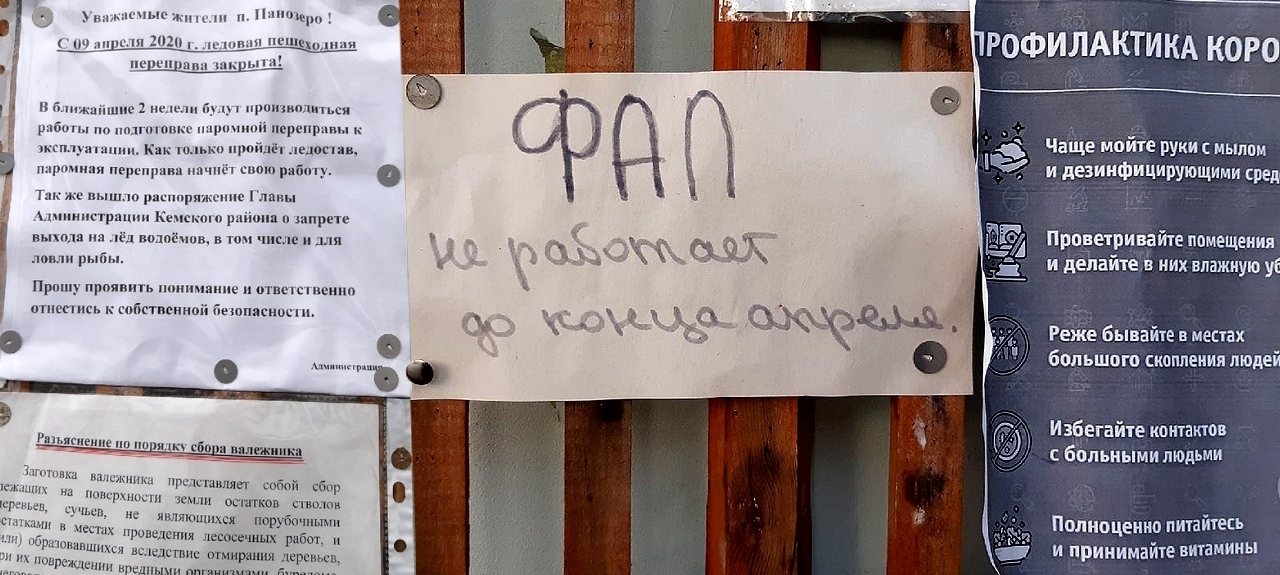 Уважаемые жители п. Панозеро !
С 09 апреля 2020 г. ледовая пешеходная
переправа закрыта!
В ближайшие 2 недели будут производиться
работы по подготовке паромной переправы к
эксплуатации. Как только пройдёт ледостав,
паромная переправа начнёт свою работу.
Так же вышло распоряжение Главы
Администрации Кемского района о запрете
выхода на лёд водоёмов, в том числе и для
ловли рыбы.
Прошу проявить понимание и ответственно
отнестись к собственной безопасности.
Администрация
Разъяснение по порядку сбора валежника
Заготовка валежника представляет собой сбор
лежащих на поверхности земли остатков стволов
деревьев, сучьев, не являющихся порубочными
остатками в местах проведения лесосечных работ, и
или) образовавшихся вследствие отмирания деревьев,
при их повреждении вредными организмами, буреломе
ФАП
не работает
до конца апреля.
ПРОФИЛАКТИКА КОРО
Чаще мойте руки с мылом
и дезинфицирующими сред
Проветривайте помещения
и делайте в них влажную уб
Реже бывайте в местах
большого скопления людей
Избегайте контактов
с больными людьми
Полноценно питайтесь
и принимайте витамины